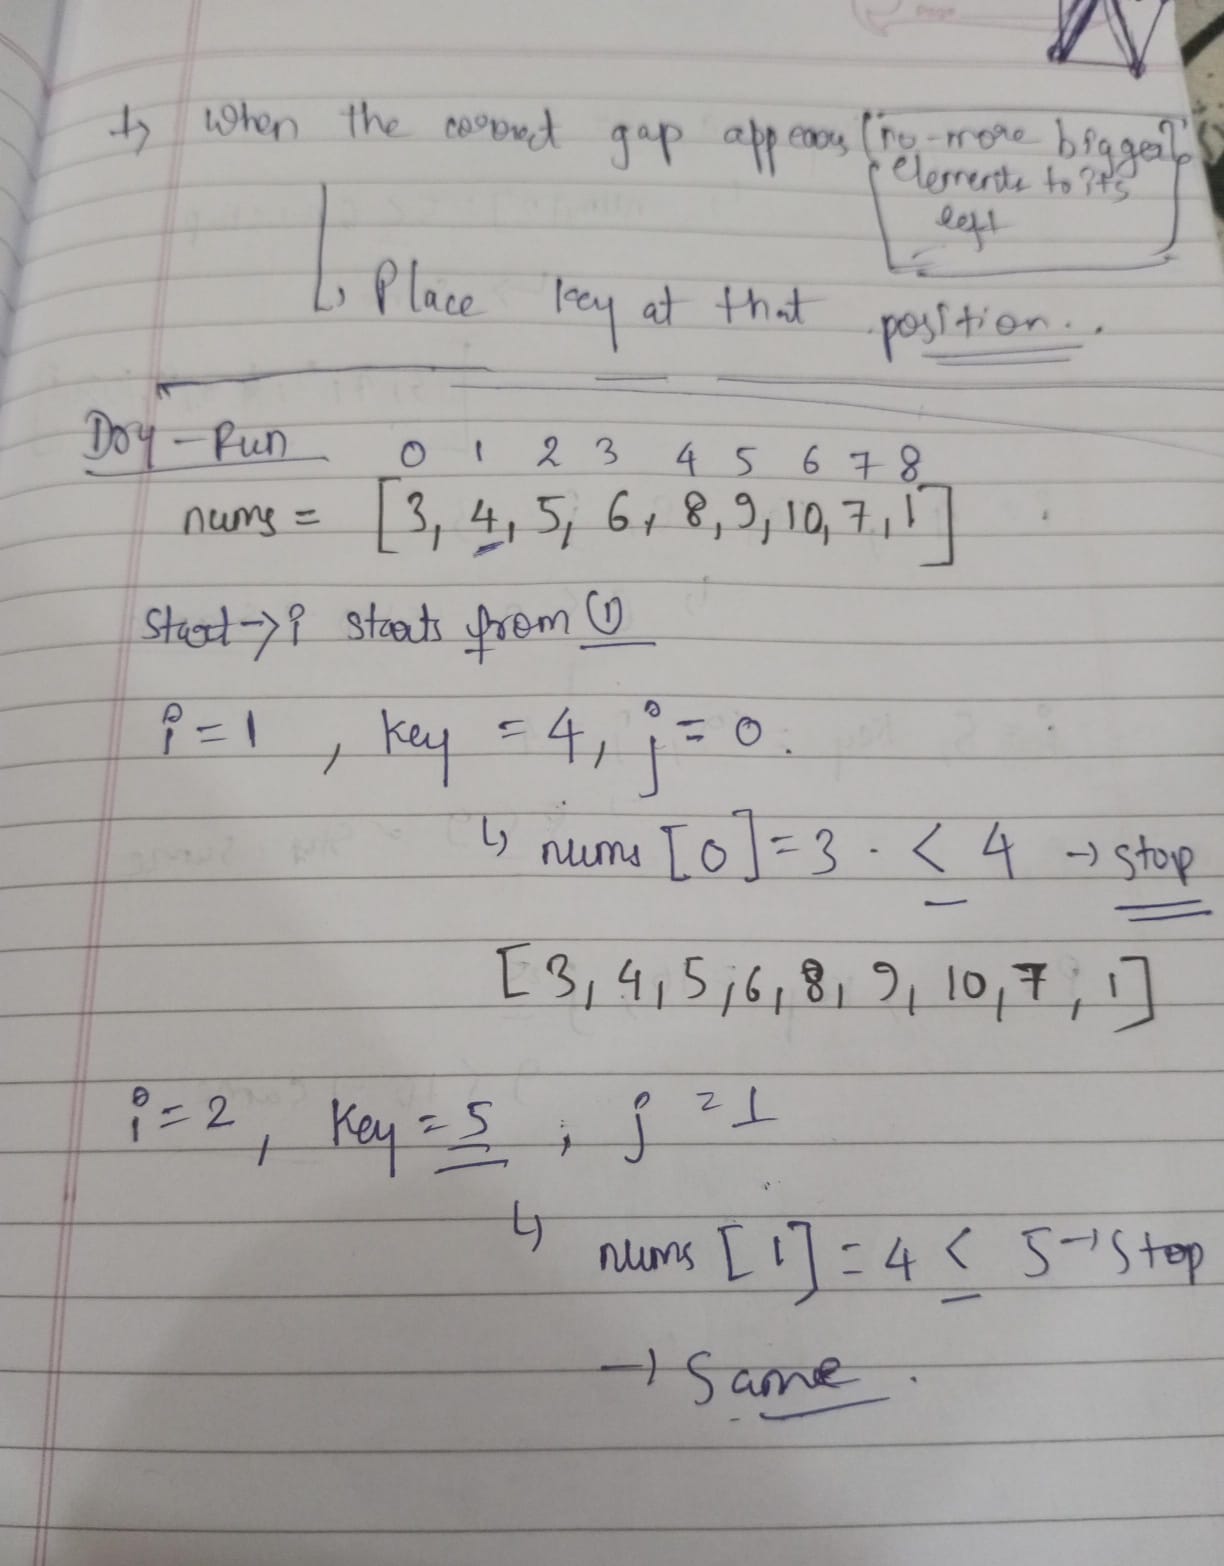 ↳ when the correct gap appears (no-more bigger
elements to its
left
↳ Place key at that position..
Dry-Run 0 1 2 3 4 5 6 7 8
nums = [3, 4, 5, 6, 8, 9, 10, 7, 1]
Start → i starts from (1)
i = 1, key = 4, j = 0.
↳ nums [0] = 3 . < 4 → stop
[3, 4, 5, 6, 8, 9, 10, 7, 1]
i = 2, key = 5, j = 1
↳ nums [1] = 4 < 5 → stop
→ Same.